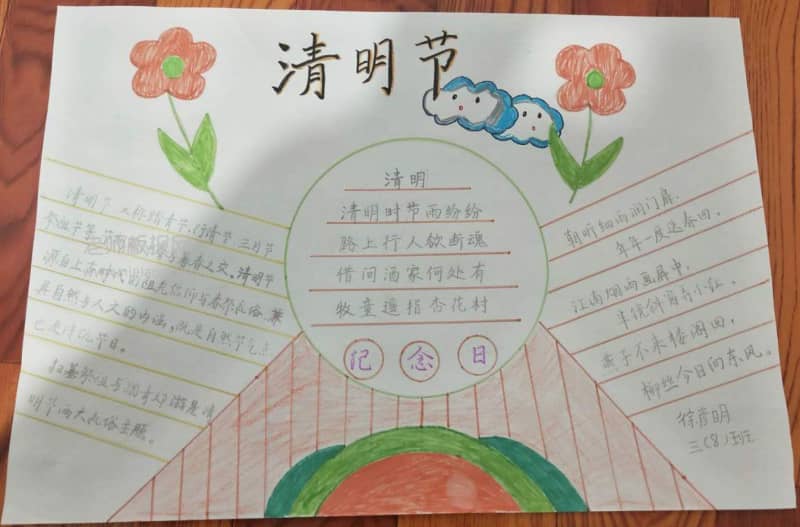 清明节
清明节 又称踏青节、行清节 三月节
祭祖节等 节 与暮春之交。清明节
源自上古时代的祖先信仰与春祭礼俗 兼
具自然与人文的内涵，既是自然节气点
也是传统节日。
扫墓祭祖与踏青郊游是清
明节两大礼俗主题。
清明
清明时节雨纷纷
路上行人欲断魂
借问酒家何处有
牧童遥指杏花村
纪念日
朝听细雨润门扉
年年一度送春回。
江南烟雨画屏中，
半镜斜窗弄小红。
燕子不来楼阁回，
柳丝今日向东风。
徐彦明
三（8）班